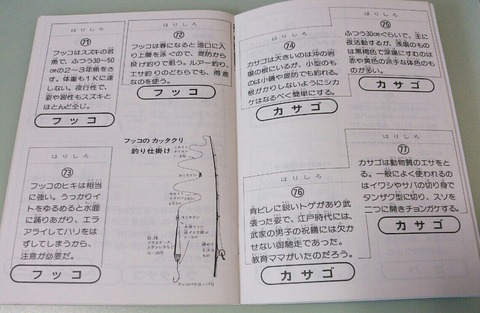 はりしろ
㉑
フッコはスズキの若
魚で、ふつう30〜50
cmの2〜3年魚をさ
す。体重も1Kに達
しない。夜行性で、
姿や習性もスズキと
ほとんど全じ。
フッコ
はりしろ
㉒
フッコは春になると湾口に入
り上層を泳ぐので、堤防から
投げ釣りで狙う。ルアー釣り、
エサ釣りのどちらでも、得意
なのを使う。
フッコ
はりしろ
73
フッコのヒキは相当
に強い。うっかりイ
トをゆるめると水面
に踊りあがり、エラ
アライしてハリをは
ずしてしまうから、
注意が必要だ。
フッコ
フッコのカッタクリ
釣り仕掛け
はりしろ
74
カサゴは大きいのは沖の岩
場の根にいるが、小型のも
のは小磯や堤防でも釣れる。
根がかりしないようにシカ
ケはなるべく簡単にする。
カサゴ
はりしろ
75
ふつう30cmぐらいで、主に
夜活動するが、浅場のもの
は黒褐色で深場にすむのは
赤や黄色の派手な体色のも
のが多い。
カサゴ
はりしろ
76
背ビレに鋭いトゲがあり武
張った姿で、江戸時代には、
武家の男子の祝膳には欠か
せない御馳走であった。
教育ママがいたのだろう。
カサゴ
はりしろ
77
カサゴは動物質のエサをと
る。一般によく使われるの
はイワシやサバの切り身で
タンザク型に切り、スソを
二つに開きチョンガケする。
カサゴ